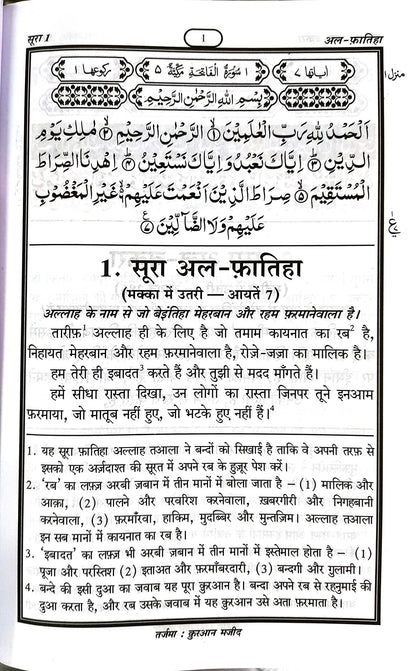 सूरा 1
1
अल-फ़ातिहा
اٰیاتها ٧
١ سُوْرَةُ الْفَاتِحَةِ مَكِّيَّةٌ ٥
رکوعها ١
منزل ١
بِسْمِ اللّٰهِ الرَّحْمٰنِ الرَّحِيْمِ
اَلْحَمْدُ لِلّٰهِ رَبِّ الْعٰلَمِيْنَ ۙ﴿١﴾ الرَّحْمٰنِ الرَّحِيْمِ ۙ﴿٢﴾ مٰلِكِ يَوْمِ
الدِّيْنِ ؕ﴿٣﴾ اِيَّاكَ نَعْبُدُ وَاِيَّاكَ نَسْتَعِيْنُ ؕ﴿٤﴾ اِهْدِنَا الصِّرَاطَ
الْمُسْتَقِيْمَ ۙ﴿٥﴾ صِرَاطَ الَّذِيْنَ اَنْعَمْتَ عَلَيْهِمْ ۙ﴿٦﴾ غَيْرِ الْمَغْضُوْبِ
عَلَيْهِمْ وَلَا الضَّآلِّيْنَ ﴿٧﴾
1. सूरा अल-फ़ातिहा
(मक्का में उतरी — आयतें 7)
अल्लाह के नाम से जो बेइंतिहा मेहरबान और रहम फ़रमानेवाला है।
तारीफ़¹ अल्लाह ही के लिए है जो तमाम कायनात का रब² है,
निहायत मेहरबान और रहम फ़रमानेवाला है, रोज़े-जज़ा का मालिक है।
हम तेरी ही इबादत³ करते हैं और तुझी से मदद माँगते हैं।
हमें सीधा रास्ता दिखा, उन लोगों का रास्ता जिनपर तूने इनआम
फ़रमाया, जो मातूब नहीं हुए, जो भटके हुए नहीं हैं।⁴
1. यह सूरा फ़ातिहा अल्लाह तआला ने बन्दों को सिखाई है ताकि वे अपनी तरफ़ से
इसको एक अर्ज़दाश्त की सूरत में अपने रब के हुज़ूर पेश करें।
2. 'रब' का लफ़्ज़ अरबी ज़बान में तीन मानों में बोला जाता है – (1) मालिक और
आक़ा, (2) पालने और परवरिश करनेवाला, ख़बरगीरी और निगहबानी
करनेवाला, (3) फ़रमाँरवा, हाकिम, मुदब्बिर और मुन्तज़िम। अल्लाह तआला
इन सब मानों में कायनात का रब है।
3. 'इबादत' का लफ़्ज़ भी अरबी ज़बान में तीन मानों में इस्तेमाल होता है – (1)
पूजा और परस्तिश (2) इताअत और फ़रमाँबरदारी, (3) बन्दगी और ग़ुलामी।
4. बन्दे की इसी दुआ का जवाब यह पूरा क़ुरआन है। बन्दा अपने रब से रहनुमाई की
दुआ करता है, और रब उसके जवाब में यह क़ुरआन उसे अता फ़रमाता है।
तर्जमा : क़ुरआन मजीद